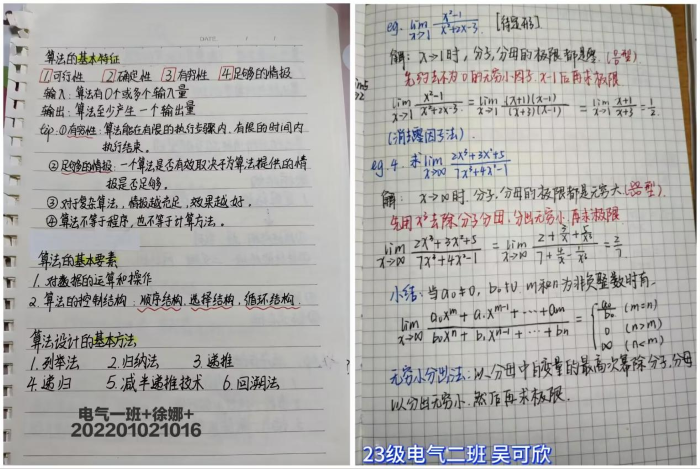 DATE
算法的基本特征
1可行性 2确定性 3有穷性 4足够的情报
输入:算法有0个或多个输入量
输出:算法至少产生一个输出量
tip:①有穷性:算法能在有限的执行步骤内、有限的时间内
执行结束。
②足够的情报:一个算法是否有效取决于为算法提供的情
报是否足够。
③对于复杂算法,情报越充足,效果越好。
④算法不等于程序,也不等于计算方法。
算法的基本要素
1.对数据的运算和操作
2.算法的控制结构:顺序结构、选择结构、循环结构.
算法设计的基本方法
1.列举法 2.归纳法 3.递推
4.递归 5.减半递推技术 6.回溯法
电气一班+徐娜+
202201021016
eg. lim x→1 (x²-1)/(x²+2x-3).
解:x→1时,分子,分母的极限都是零.(0/0型)
先约去不为0的无穷小因子x-1后再求极限
lim x→1 (x²-1)/(x²+2x-3) = lim x→1 (x+1)(x-1)/(x+3)(x-1) = lim x→1 (x+1)/(x+3) = 1/2.
(消去零因子法).
eg.4.求 lim x→∞ (2x³+3x²+5)/(7x³+4x²-1)
解:x→∞时,分子,分母的极限都是无穷大(∞/∞型).
先用x³去除分子分母,分出无穷小,再求极限
lim x→∞ (2x³+3x²+5)/(7x³+4x²-1) = lim x→∞ (2+3/x+5/x³)/(7+4/x-1/x³) = 2/7.
小结:当a₀≠0,b₀≠0,m和n为非负整数时有.
lim x→∞ (a₀x^m+a₁x^(m-1)+…+am)/(b₀x^n+b₁x^(n-1)+…+bn) = { a₀/b₀ (m=n)
0 (n>m)
∞ (n<m)
无穷小分出法:以分母中自变量的最高次幂除分子,分母
以分出无穷小,然后再求极限.
23级电气二班 吴可欣